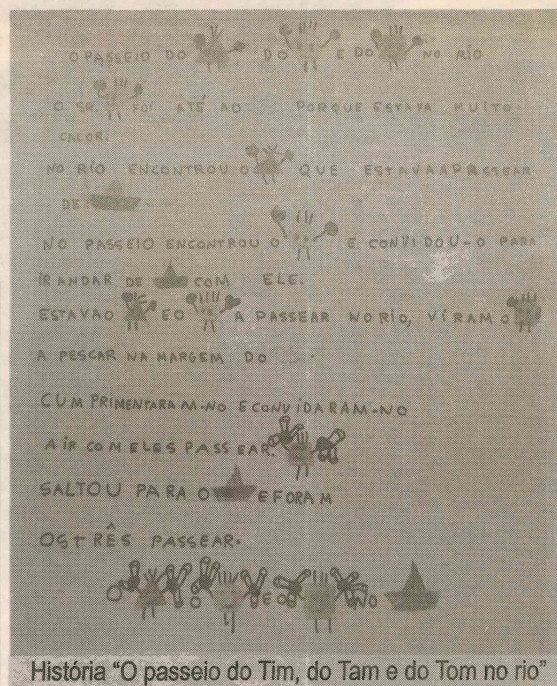 O PASSEIO DO DO E DO NO RÍO
O SR. FOI ATÉ AO PORQUE ESTAVA MUITO
CALOR.
NO RÍO ENCONTROU O QUE ESTAVA A PASSEAR
DE
NO PASSEIO ENCONTROU O E CONVIDOU-O PARA
IR ANDAR DE COM ELE.
ESTAVA O E O A PASSEAR NO RÍO, VÍRAM O
A PESCAR NA MARGEM DO
CUMPRIMENTARAM-NO E CONVIDARAM-NO
A IR COM ELES PASSEAR.
SALTOU PARA O E FORAM
OS TRÊS PASSEAR.
O E O NO
História "O passeio do Tim, do Tam e do Tom no rio"